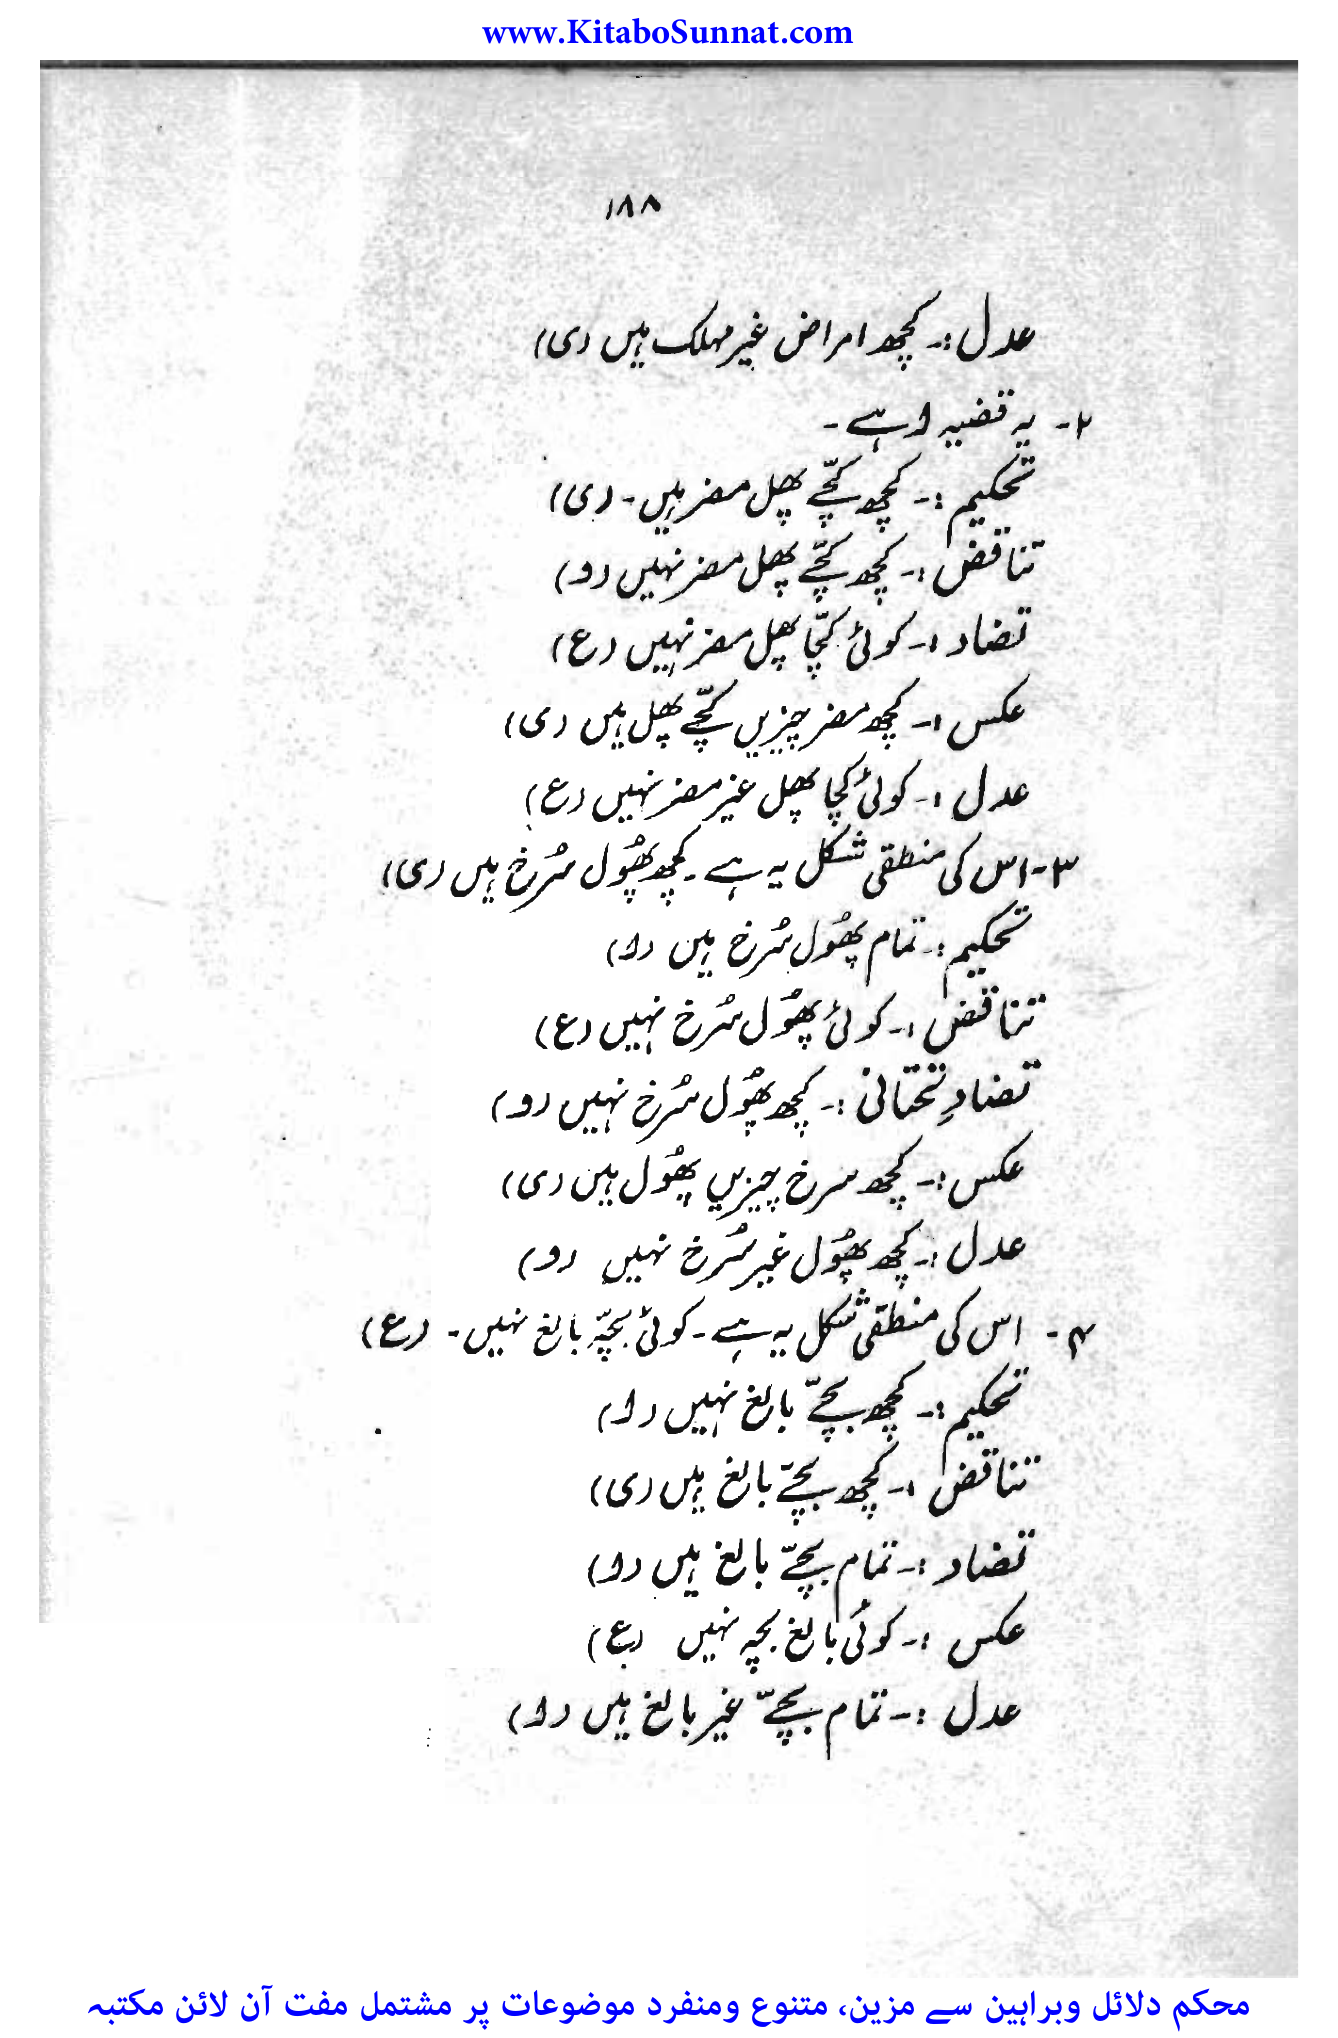 www.KitaboSunnat.com
۱۸۸
عدل :۔ کچھ امراض غیر مہلک ہیں (ی)
۲۔ یہ قضیہ ا ہے ۔
تحکیم :۔ کچھ کچّے پھل مضر ہیں۔ (ی)
تناقض :۔ کچھ کچّے پھل مضر نہیں (و)
تضاد :۔ کوئی کچّا پھل مضر نہیں (ع)
عکس :۔ کچھ مضر چیزیں کچّے پھل ہیں (ی)
عدل :۔ کوئی کچا پھل غیر مضر نہیں (ع)
۳۔ اس کی منطقی شکل یہ ہے ۔ کچھ پھُول سُرخ ہیں (ی)
تحکیم :۔ تمام پھُول سُرخ ہیں (ا)
تناقض :۔ کوئی پھُول سُرخ نہیں (ع)
تضادِ تحتانی :۔ کچھ پھُول سُرخ نہیں (و)
عکس :۔ کچھ سرخ چیزیں پھُول ہیں (ی)
عدل :۔ کچھ پھُول غیر سُرخ نہیں (و)
۴۔ اس کی منطقی شکل یہ ہے ۔ کوئی بچّہ بالغ نہیں۔ (ع)
تحکیم :۔ کچھ بچّے بالغ نہیں (ا)
تناقض :۔ کچھ بچّے بالغ ہیں (ی)
تضاد :۔ تمام بچّے بالغ ہیں (ا)
عکس :۔ کوئی بالغ بچہ نہیں (ع)
عدل :۔ تمام بچّے غیر بالغ ہیں (ا)
محکم دلائل وبراہین سے مزین، متنوع ومنفرد موضوعات پر مشتمل مفت آن لائن مکتبہ